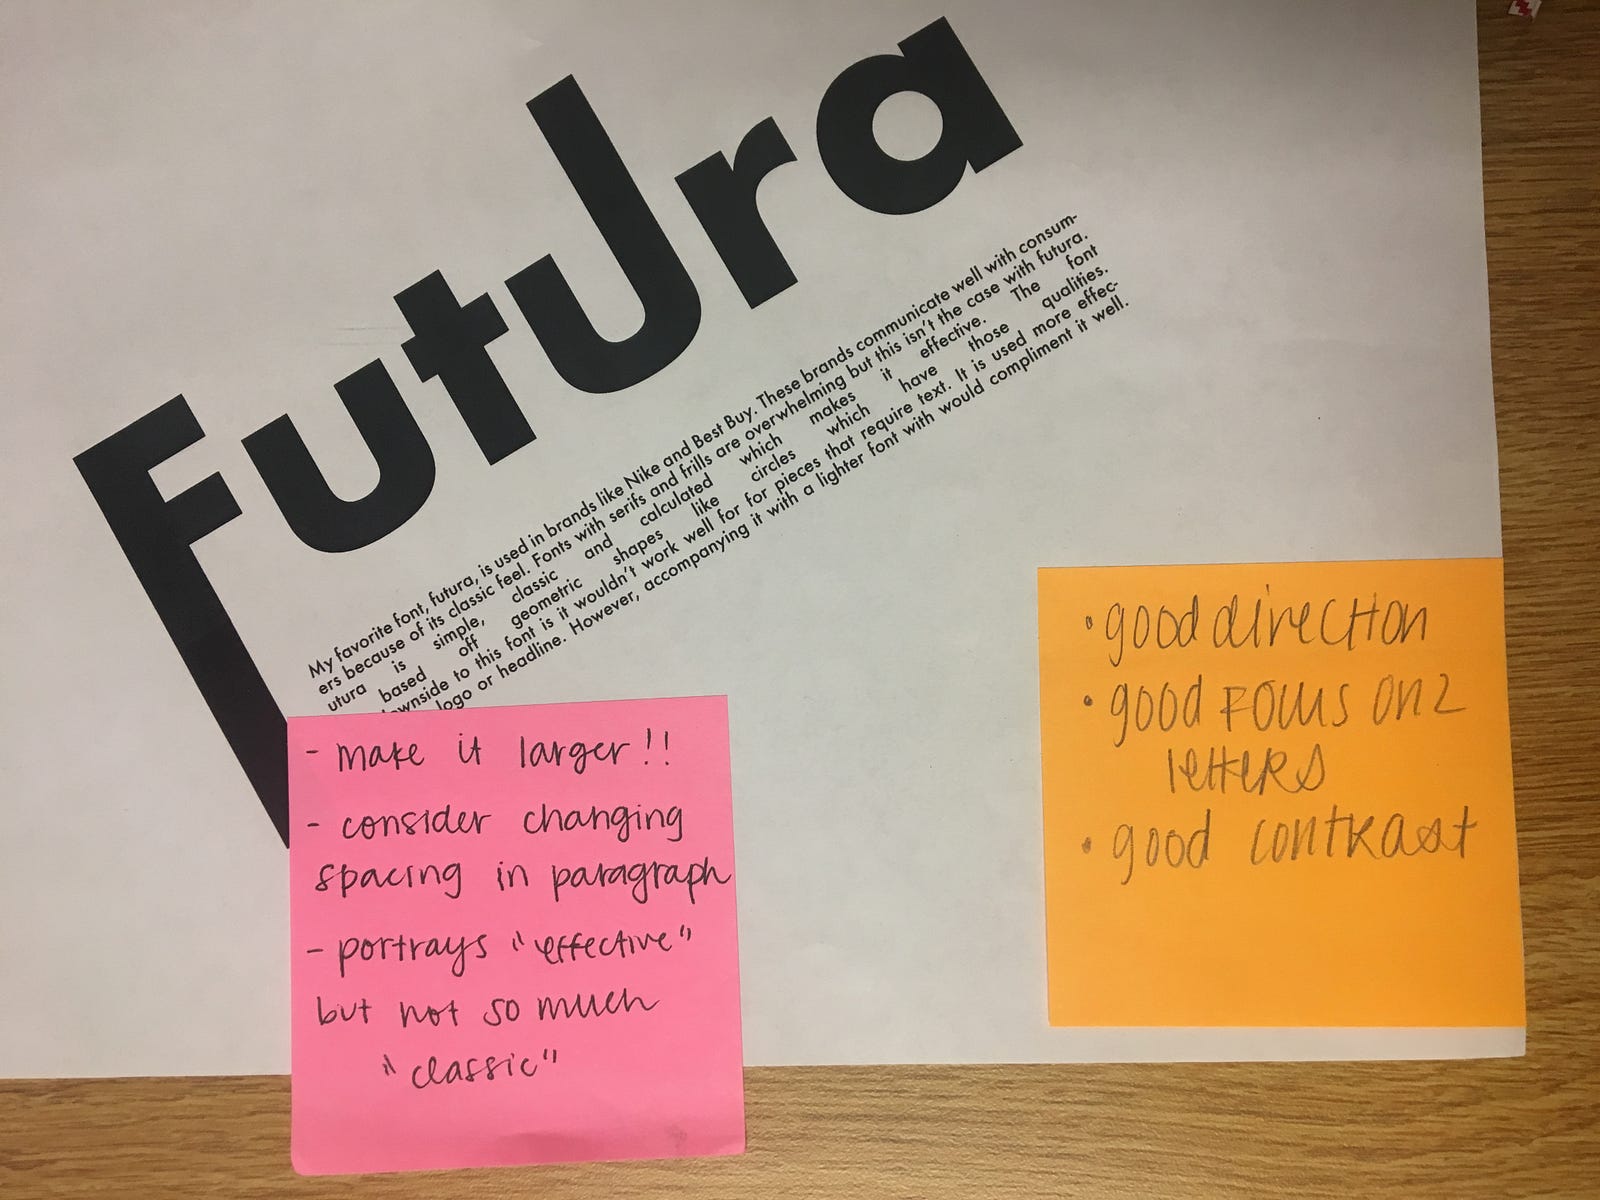 FutUra
My favorite font, futura, is used in brands like Nike and Best Buy. These brands communicate well with consum-
ers because of its classic feel. Fonts with serifs and frills are overwhelming but this isn't the case with futura.
utura is simple, classic and calculated which makes it effective. The font
based off geometric shapes like circles which have those qualities.
ownside to this font is it wouldn't work well for for pieces that require text. It is used more effec-
logo or headline. However, accompanying it with a lighter font with would compliment it well.
- make it larger!!
- consider changing
spacing in paragraph
- portrays "effective"
but not so much
"classic"
• good direction
• good focus on 2
letters
• good contrast